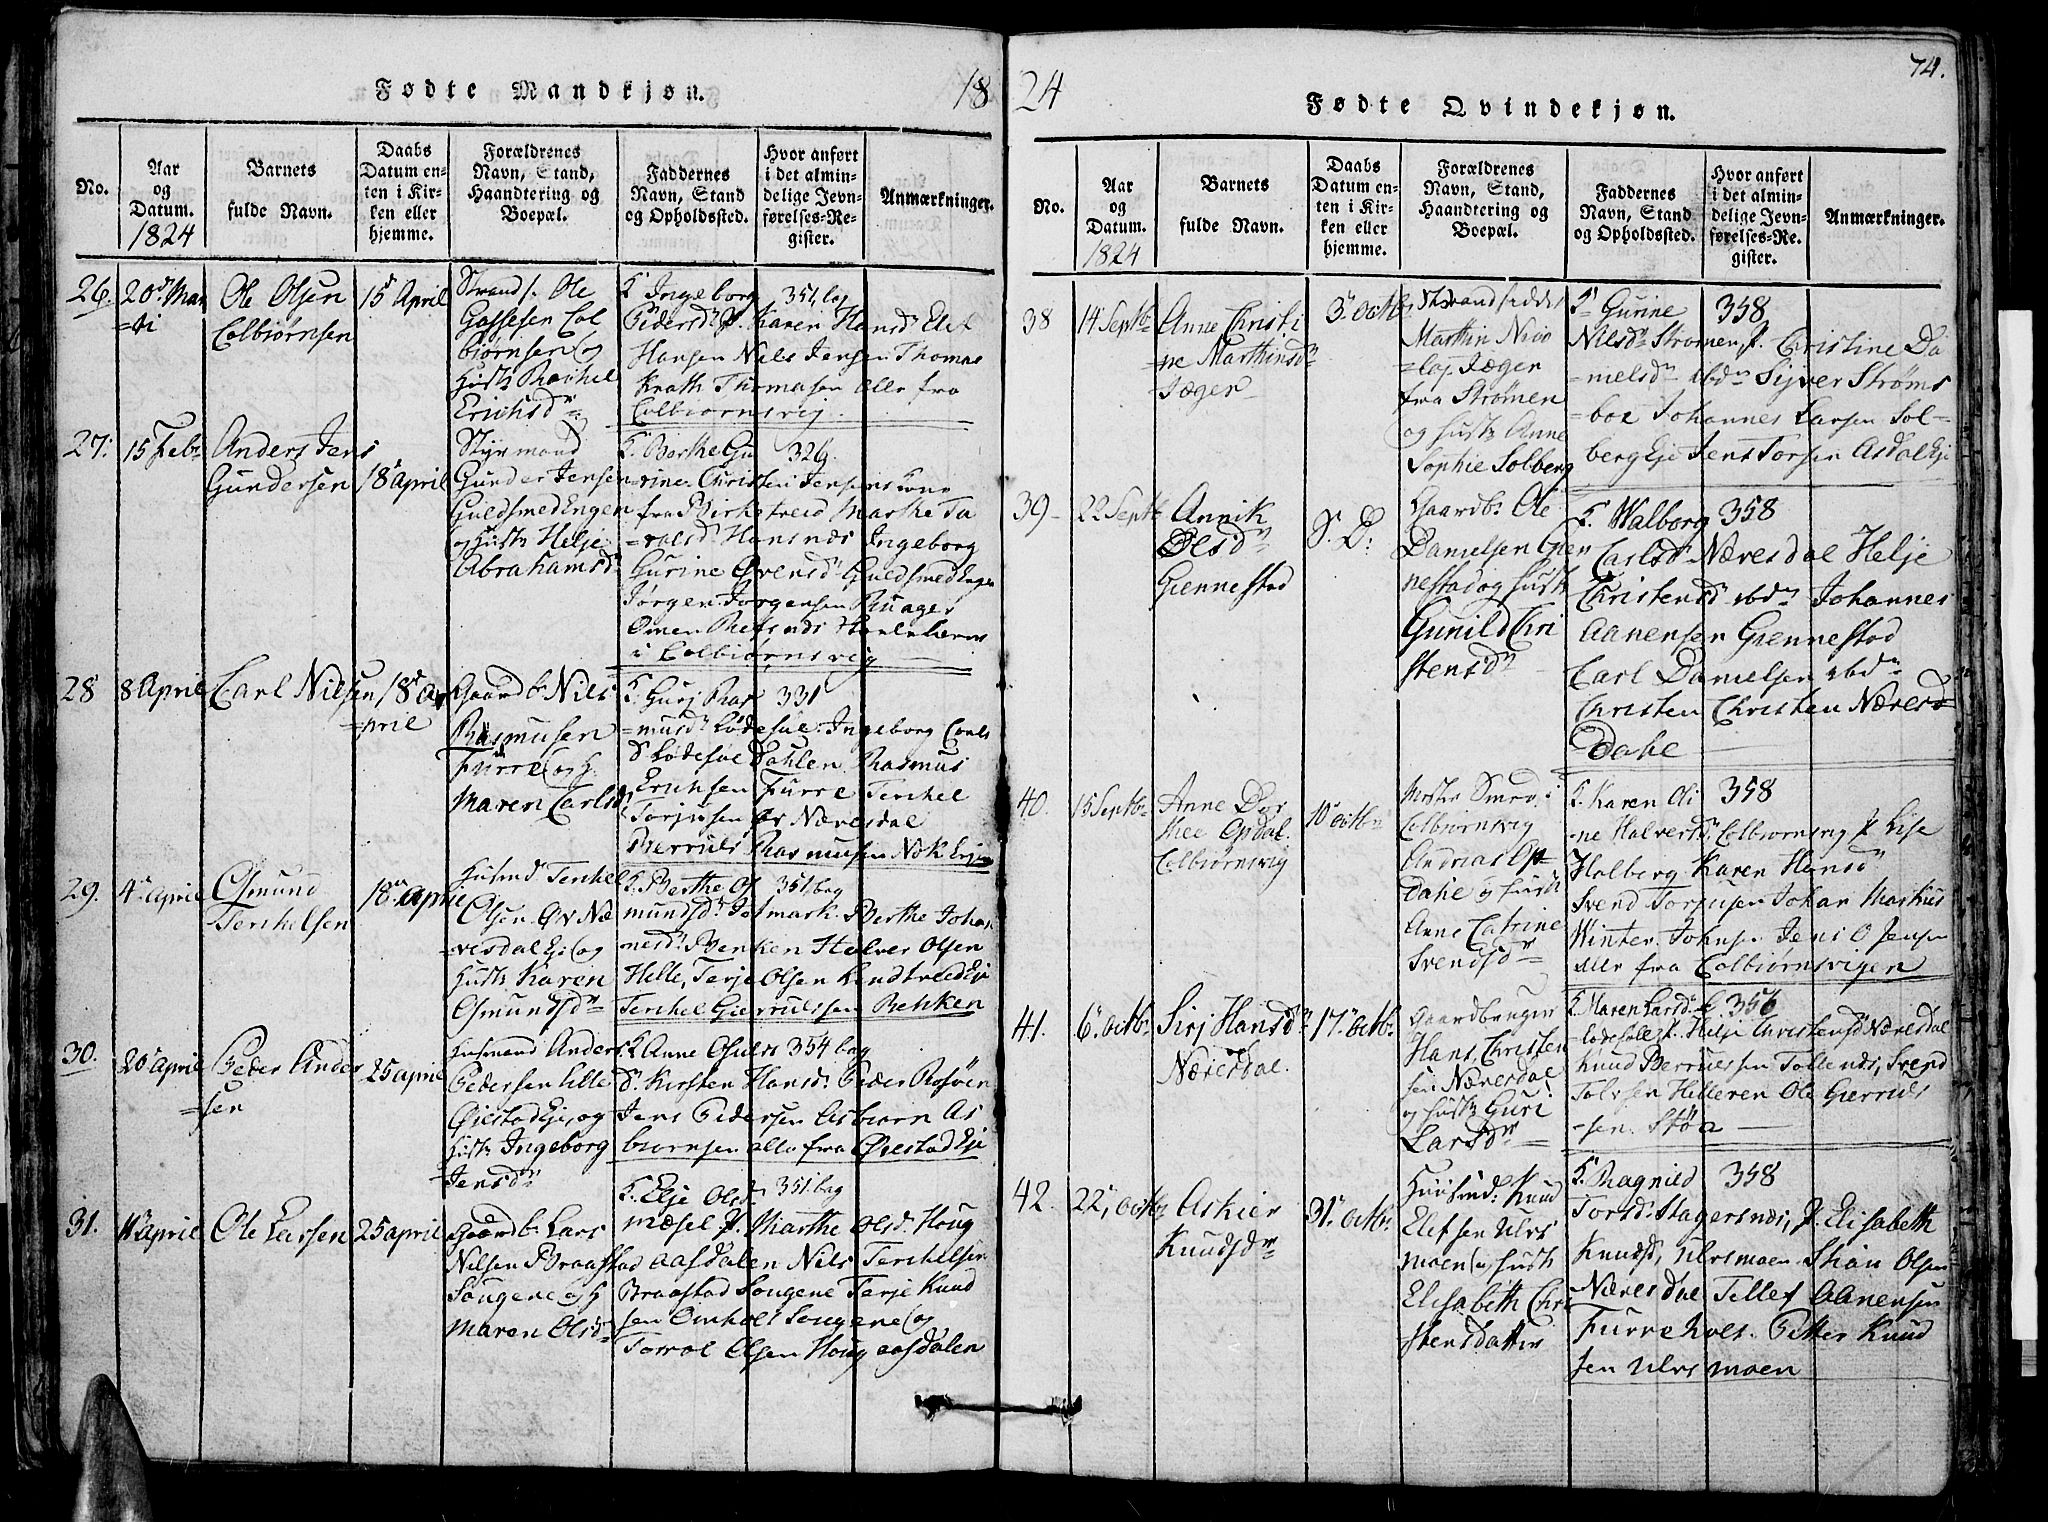 18
Fødte Mandkjøn.
No.
Aar
og
Datum.
1824
Barnets
fulde Navn.
Daabs
Datum en-
ten i Kir-
ken eller
hjemme.
Forældrenes
Navn, Stand,
Haandtering og
Boepæl.
Faddernes
Navn, Stand
og Opholdssted.
Hvor anført
i det almin-
delige Jevn-
førelses-Re-
gister.
Anmærkninger.
26.
20d Mar
=ti
Ole Olsen
Colbiørnsen
15d April
Strands. Ole
Gassesen Col
bjørnsen og
Hust: Rachel
Erichsd
K Ingeborg 351, bag
Pedersd: P. Karen Hansd: Elef
Hansen Niels Jensen Thomas
Krath Thomasen alle fra
Colbiørnsvig.
27.
15 Febr
Anders Jens
Gundersen
18 April
Styrmand
Gunder Jensen
Guldsmed Engen
og Hust: Helje
Abrahamsd
K. Berthe Gu 326.
=rine Christen Jensens Kone
fra Birketveid Marthe Ta
=ralsd: Hansnæs Ingeborg
Gurine Øvensd: Guldsmed Engen
Jørgen Jørgensen Ruager
i Colbiørnsvig
28
8 April
Carl Nilsen
18d A
=prie
Gaardb: Niels
Rasmusen
Furre og H:
Maren Carlsd
K. Gurj Ras 331
=musd: Lødesøl: Ingeborg Carls
D Lødesøl Dahlen Rasmus
Erichsen Furre Terchel
Torjusen Øv Næresdal
Berruls Rasmusen
29.
4 April
Osmund
Terchelsen
18 April
Husmd Terchel
Olsen Øv Næ
=resdal Eje og
Hust: Karen
Osmundsd
K. Berthe Os 351. bag
mundsd: Jotmark. Berthe Johan
nesd: Benken Halvor Olsen
Helle, Terje Olsen Lendtveed Eje
Terchel Gierrulssen Behken
30.
20 April
Peder Ander
=sen
25 April
Husmand Anders
Pedersen Lille
Øiestad Eje, og
Hust: Ingeborg
Jensd
K Anne Osuls 354 bag
D. Kirsten Hansd: Peder Rosøen
Jens Pedersen Asbiørn As
biørnsen alle fra Øiestad Eje
31.
11 April
Ole Larsen
25 April
Gaardb: Lars
Nilsen Braastad
Songene og H
Maren Olsd
K. Elje Olsd 351. bag
mæsel P. Marthe Olsd: Houg
aasdalen Niels Terchelsen
Braastad Songene Terje Knud
sen Omholt Songene og
Torvol Olsen Houg aasdalen
24
74.
Fødte Qvindekjøn.
No.
Aar
og
Datum.
1824
Barnets
fulde Navn.
Daabs
Datum en-
ten i Kir-
ken eller
hjemme.
Forældrenes
Navn, Stand,
Haandtering og
Boepæl.
Faddernes
Navn, Stand
og Opholdssted.
Hvor anført
i det almin-
delige Jevn-
førelses-Re-
gister.
Anmærkninger.
38
14 Septb
Anne Christi
ne Marthinsd
Jæger
3. Octb
Strandsidder
Marthin Nico
=laj Jæger
fra Strømen
og Hust: Anne
Sophie Solberg
K. Gurine 358
Nilsd: Strømen, P. Christine Da
=nielsd: ibd Sijver Strøms
=boe Johannes Larsen Sol-
berg Eje Jens Torsen Asdal Eje
39
22 Septb
Annik
Olsd
Giennestad
S. D:
Gaardb: Ole
Danielsen Gien
nestad og Hust:
Gunild Chri
stensd
K. Walborg 358
Carlsd: Næresdal Helje
Christensd ibd Johannes
Aanensen Giennestad
Carl Danielsen ibd
Christen Christen Næresd
Dahl
40.
15 Septb
Anne Dor
thee Opdal
Colbiørnsvig
10 octb
Mester Smed i
Colbiørnsvig
Andrias Op
Dahl og Hust:
Anne Catrine
Svendsd
K. Karen Oli 358
ne Halversd Colbiørnsvig P Lise
Holberg Karen Hansd
Svend Torjusen Johan Markus
Winter Johnsen Jens O Jensen
alle fra Colbiørnsvigen
41.
6. octb:
Sirj Hansd
Næresdal.
17. octb:
Gaardbruger
Hans Christen
sen Næresdal
og Hust: Guri
Larsd
K Maren Larsd: 356
Lødesøll P. Helje Christensd Næresdal
Knud Berrulssen Tollenæs, Svend
Tolvsen Helleren Ole Gierruls
=sen. Støa
42.
22, octb:
Askier
Knudsd
31. octb:
Huusmd: Knud
Elefsen Ulvs
moen og Hust:
Elisabeth Chri
stensdatter
K. Ragnild 358
Torsd: Stagersnæs, P. Elisabeth
Knudsd, Ulvsmoen Stian Olsen
Næresdal Tellef Aanensen
Furreholt. Petter Knud
sen Ulvsmoen